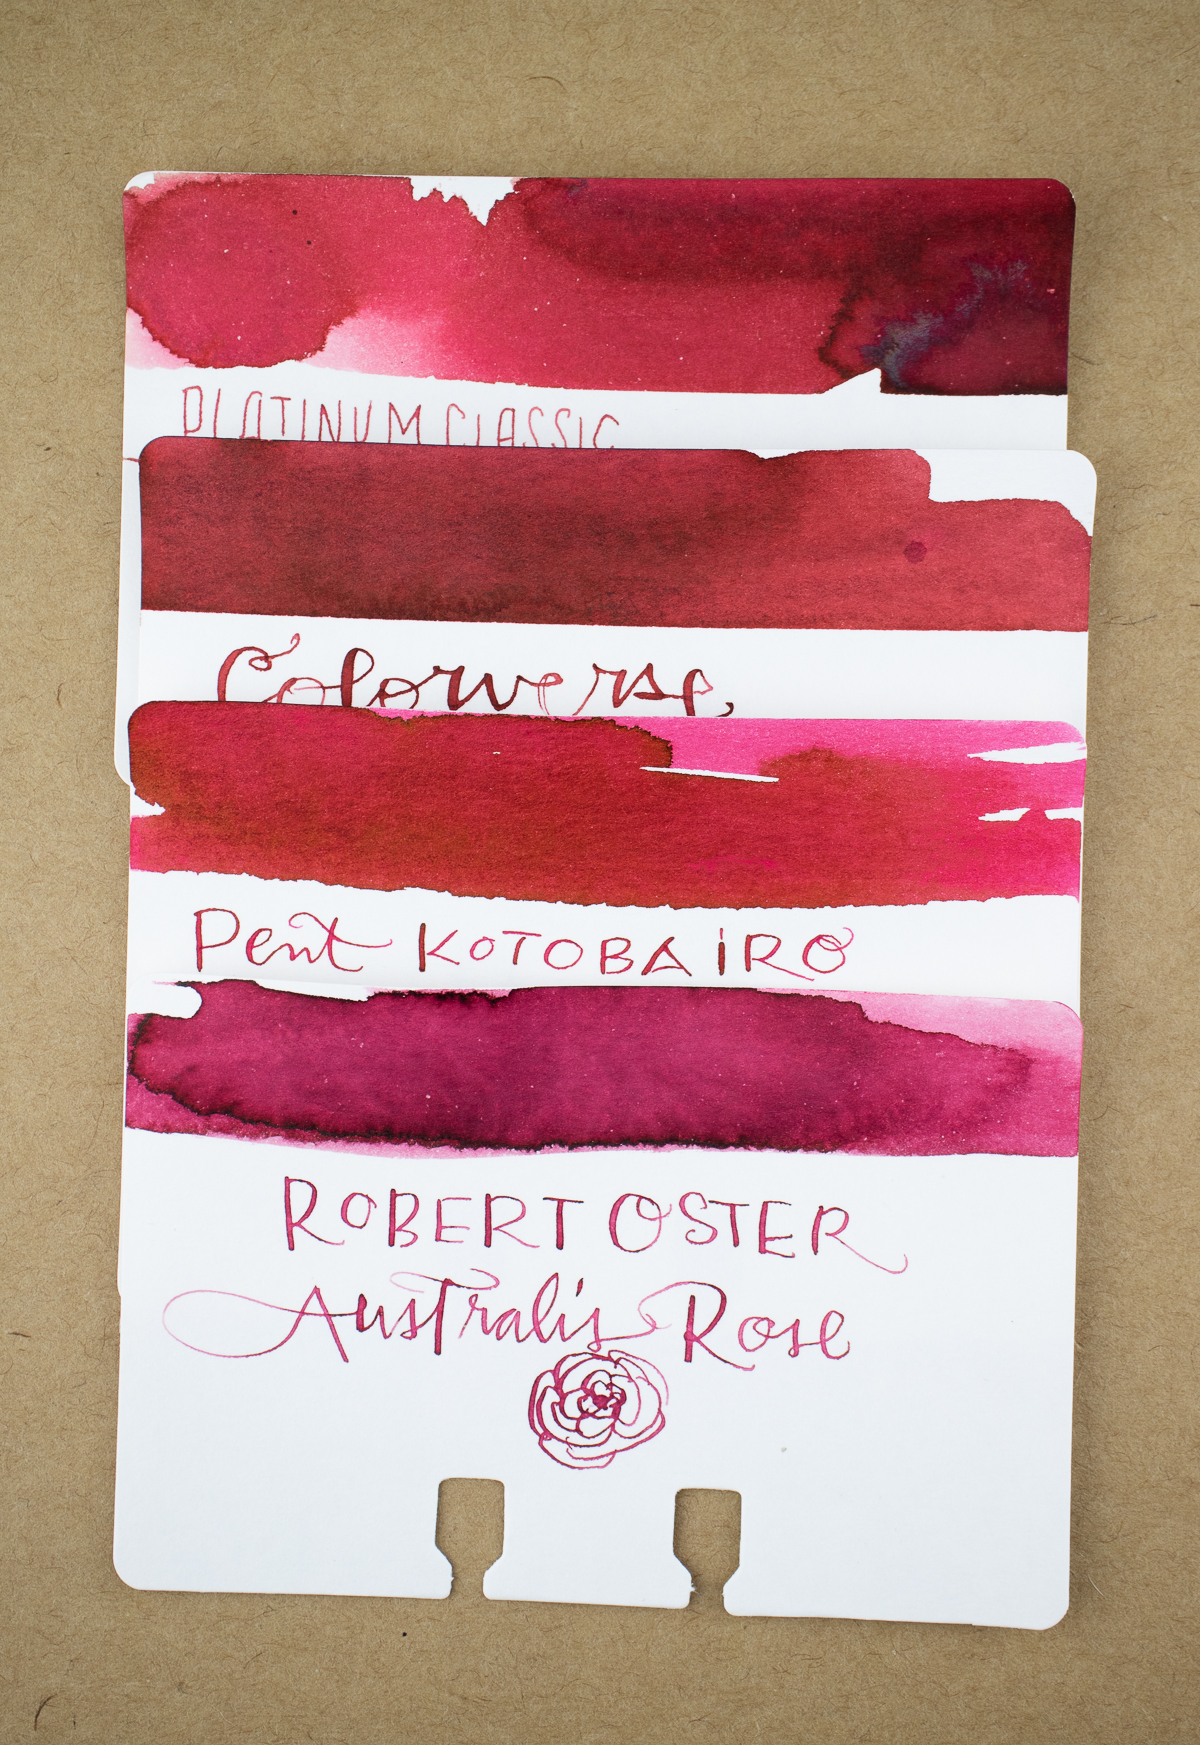 PLATINUM CLASSIC
Colorverse
Pent KOTOBAIRO
ROBERT OSTER
Australis Rose